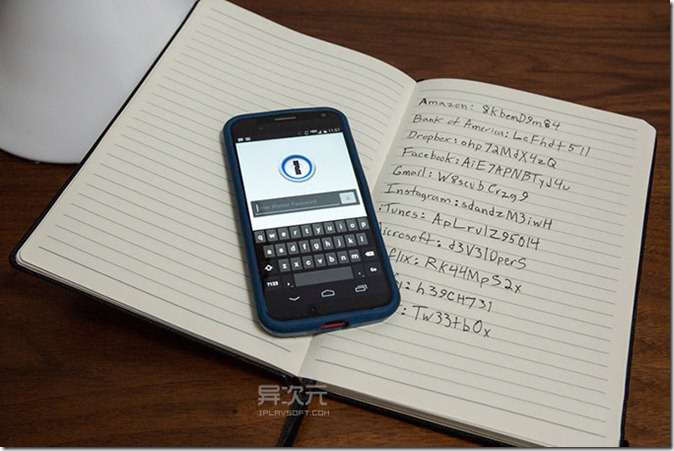 Amazon: 8kbemD9m84
Bank of America: LaFhdt511
Dropbox: ohp72MdX4zQ
Facebook: AiE7APNBTyJ4u
Gmail: W8scvbCrzg9
Instagram: sdandzM3iwH
iTunes: ApLrvlZ95014
Microsoft: d3V3IDperS
flix: RK44MpS2x
: h39CH731
: Tw33tbOx
11:57
Master Password
q w e r t y u i o p
a s d f g h j k l
z x c v b n m
?123
Go
异次元
IPLAYSOFT.COM